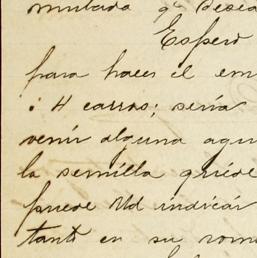 mulada qe desea
Espero
para hacer el em
i 4 carros; sería
venir alguna agu
la semilla quéde
puede Ud indicar
tanto en su rom